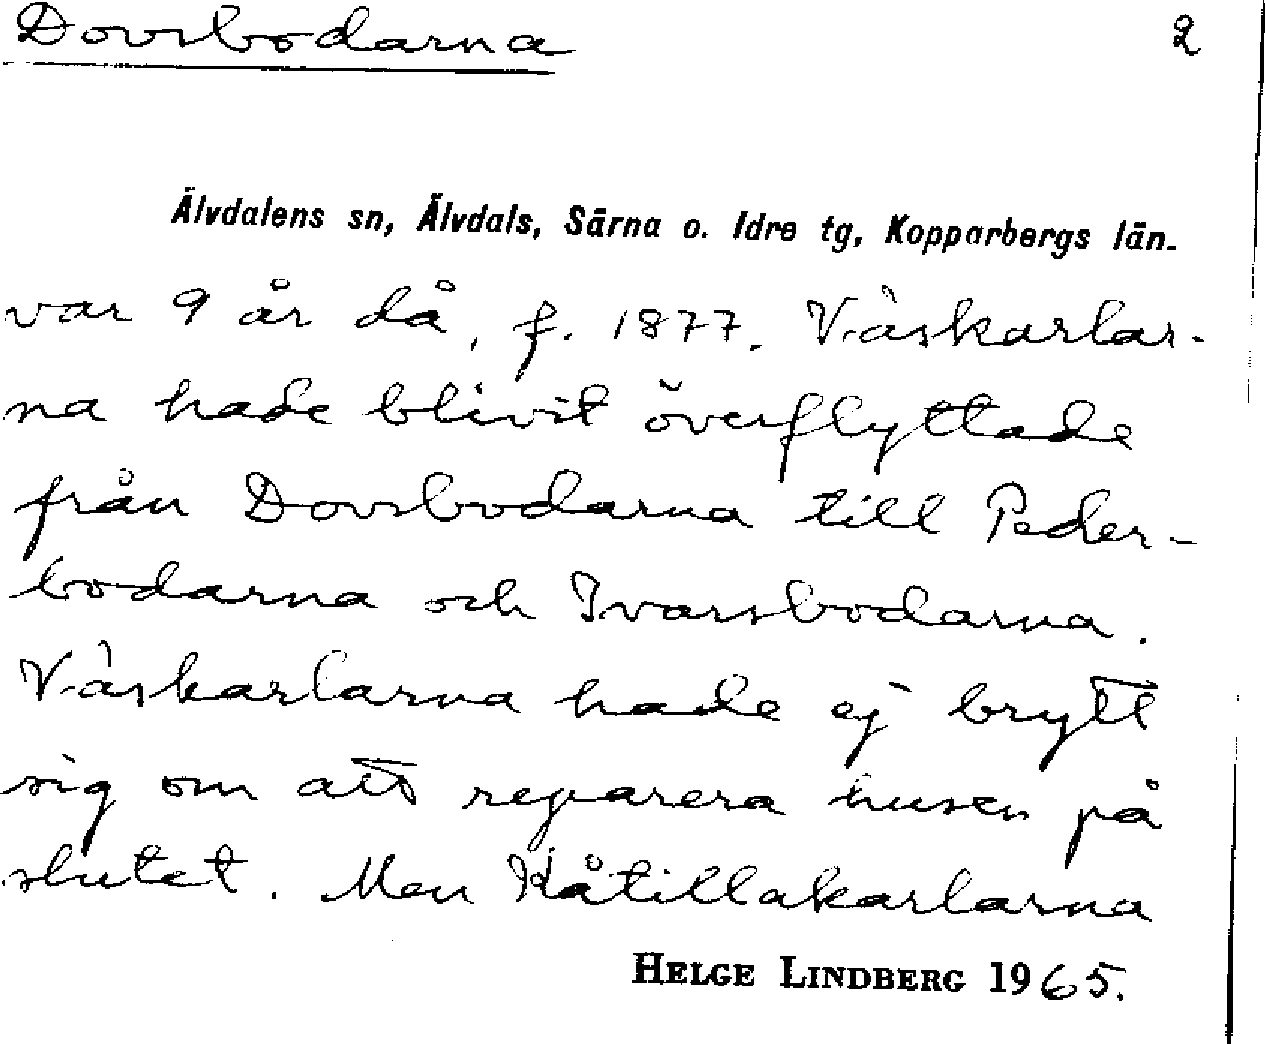 Dovsbodarna 2
Älvdalens sn, Älvdals, Särna o. Idre tg, Kopparbergs län.
var 9 år då, f. 1877. Våskarlar-
na hade blivit överflyttade
från Dovsbodarna till Peder-
bodarna och Ivarsbodarna.
Våskarlarna hade ej brytt
sig om att reparera husen på
slutet. Men Kåtillakarlarna
HELGE LINDBERG 1965.